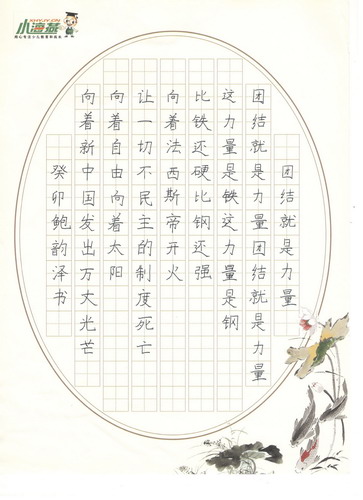 小海燕
团结就是力量
团结就是力量团结就是力量
这力量是铁这力量是钢
比铁还硬比钢还强
向着法西斯帝开火
让一切不民主的制度死亡
向着自由向着太阳
向着新中国发出万大光芒
癸卯鲍韵泽书